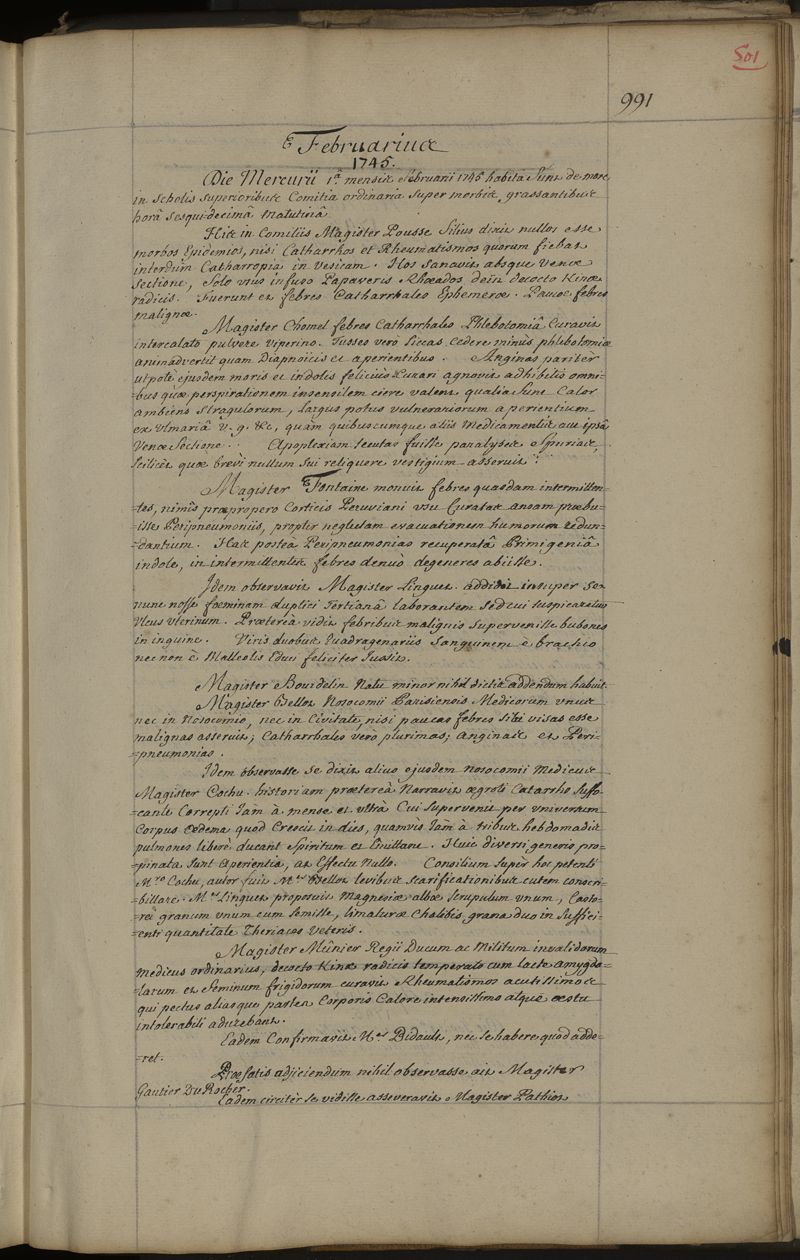 501
991
Februarius
1745.
Die Mercurii 1ª. mensis Februarii 1745 habita sunt de more
in Scholis superioribus Comitia ordinaria super morbis grassantibus
horâ sesqui-decimâ matutinâ.
His in Comitiis Magister Pousse filius dixit nullos esse
morbos Epidemios, nisi Catharrhos et Rheumatismos quorum fiebat
interdum Catharropia in vesicam. Hos sanavit absque venæ
sectione, solo usu infuso Papaveris Rhœados dein decocto Kinæ
radicis. Fuerunt et febres Catharrhales Ephemeræ. Paucæ febres
malignæ.
Magister Chomel febres Catharrhales Phlebotomiâ Curavit
intercalato pulvere viperino. Tusses verò siccas Cedere minùs phlebotomiæ
animadvertit quam Diapnoicis et aperientibus. Anginas pariter
utpotè ejusdem moris et indolis feliciùs Curari agnovit adhibitis omni-
bus quæ perspirationem insensilem ciere valent qualia sunt Calor
ambiens stragulorum, largus potus vulnerariorum aperientium
ex Ulmariâ v. g. &c, quàm quibuscumque aliis Medicamentis aut ipsâ
Venæ Sectione. Apoplexiam secutas fuisse paralyses spurias,
scilicet quæ brevi nullum sui reliquere vestigium asseruit.
Magister Fontaine monuit febres quasdam intermitten-
=tes, nimis præpropero Corticis Peruviani usu Curatas ansam præbu-
isse Peripneumoniis, propter neglectam evacuationem humorum redun-
=dantium. Has posteà Peripneumonias recuperatâ Primigeniâ
indole, in intermittentes febres denuò degeneres abiisse.
Idem observavit Magister Linguet. addidit insuper se
nunc nosse fœminam duplici tertianâ laborantem sed cui suspicatur
ulcus uterinum. Prætereà vidit febribus malignis supervenisse bubones
in inguine. Viris duobus quadragenariis sanguinem è brachio
nec non è Malleolis Educi feliciter Jussit.
Magister Bourdelin natu minor nihil dictis addendum habuit.
Magister Bellot Nosocomii Parisiensis Medicorum unus
nec in Nosocomio, nec in Civitate, nisi paucas febres sibi visas esse
malignas asseruit; Catharrhales verò plurimas; anginas et Peri-
=pneumonias.
Idem observasse se dixit alius ejusdem nosocomii Medicus
Magister Cochu. historiam prætereà Narravit ægroti Catarrho suffo-
=cante Correpti Jam à mense et ultrà Cui supervenit per universum
Corpus œdema quod Crescit in dies, quamvis Jam à tribus hebdomadis
pulmones liberè ducant Spiritum et Emittant. Huic diversi generis pro-
=pinata sunt aperientia, at Effectu Nullo. Consilium super hoc petenti
M.ro Cochu, autor fuit M.er Bellot levibus scarificationibus cutem conscri-
=billare. M.er Linguet proposuit Magnesiæ albæ scrupulum unum, Casto-
=rei granum unum cum semisse, limaturæ Chalibis grana duo in suffici-
=enti quantitate Theriaces Veteris.
Magister Mûnier Regii Ducum ac Militum invalidorum
medicus ordinarius, decocto Kinæ radicis temperato cum lacte amygda=
=larum et seminum frigidorum curavit Rheumatismos acutissimos
qui pectus aliasque partes Corporis Calore intensissimo atque æstu
intolerabili adurebant.
Eadem Confirmavit M.er Bidault, nec se habere quod adde-
=ret.
Præfatis adjiciendum nihil observasse ait Magister
Gautier Du Rocher.
Eadem circiter se vidisse asseveravit Magister Pathiot